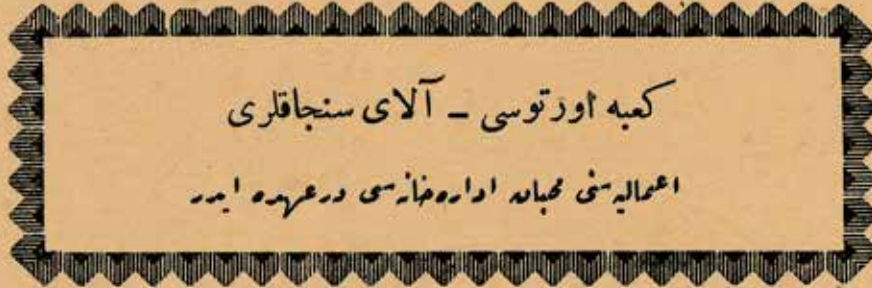 كعبه اورتوسی ـ آلای سنجاقلری
اعمالیه‌سنی محبان اداره‌خانه‌سی درعهده ایدر